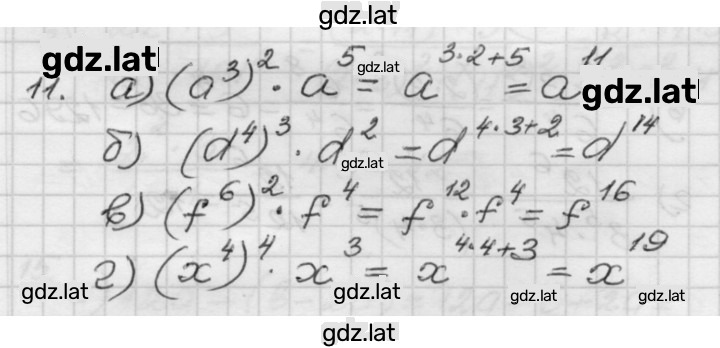 gdz.lat
gdz.lat
11. а) (a³)² · a⁵ = a³·²⁺⁵ = a¹¹
gdz.lat
gdz.lat
б) (d⁴)³ · d² = d⁴·³⁺² = d¹⁴
gdz.lat
в) (f⁶)² · f⁴ = f¹² · f⁴ = f¹⁶
г) (x⁴)⁴ · x³ = x⁴·⁴⁺³ = x¹⁹
gdz.lat
gdz.lat
gdz.lat
gdz.lat
gdz.lat